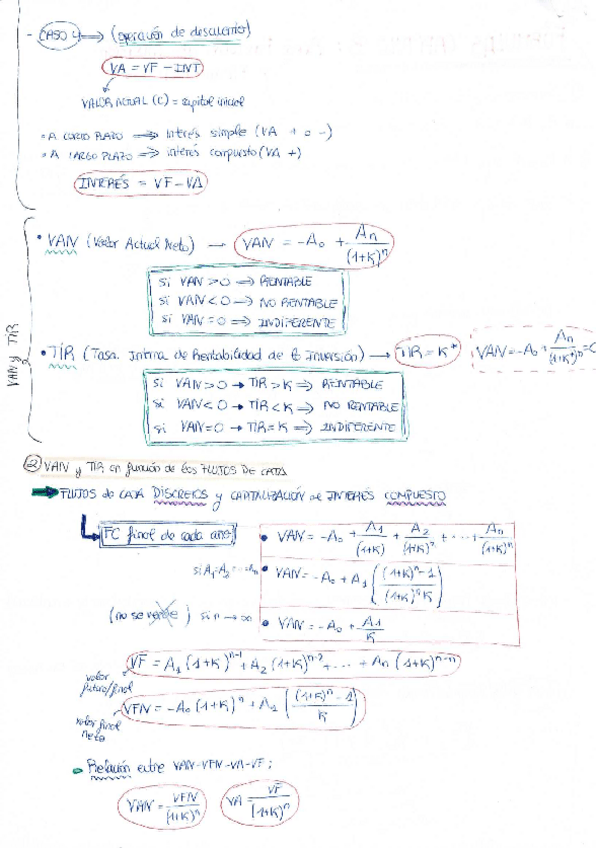 - CASO 4 → (operación de descuento)
VA = VF - INT
VALOR ACTUAL (C) = capital inicial
• A CORTO PLAZO ⟹ interés simple (VA + o -)
• A LARGO PLAZO ⟹ interés compuesto (VA +)
INTERÉS = VF - VA
VAN y TIR
• VAN (Valor Actual Neto) → VAN = -A₀ + An/(1+K)ⁿ
si VAN > 0 ⟹ RENTABLE
si VAN < 0 ⟹ NO RENTABLE
si VAN = 0 ⟹ INDIFERENTE
• TIR (Tasa Interna de Rentabilidad de la Inversión) → TIR = K* VAN = -A₀ + An/(1+K*)ⁿ = 0
si VAN > 0 → TIR > K ⟹ RENTABLE
si VAN < 0 → TIR < K ⟹ NO RENTABLE
si VAN = 0 → TIR = K ⟹ INDIFERENTE
② VAN y TIR en función de los FLUJOS DE CAJA
➡ FLUJOS de CAJA DISCRETOS y CAPITALIZACIÓN de INTERÉS COMPUESTO
FC final de cada año
• VAN = -A₀ + A1/(1+K) + A2/(1+K)ⁿ + ... + An/(1+K)ⁿ
si A₁=A₂=...=An • VAN = -A₀ + A₁ ((1+K)ⁿ - 1/(1+K)ⁿ K)
(no se verde) si n → ∞ • VAN = -A₀ + A1/K
VF = A₁ (1+K)ⁿ⁻¹ + A₂ (1+K)ⁿ⁻² + ... + An (1+K)ⁿ⁻ⁿ
valor futuro/final
VFN = -A₀ (1+K)ⁿ + A₁ ((1+K)ⁿ - 1/K)
valor final neto
• Relación entre VAN-VFN-VA-VF;
VAN = VFN/(1+K)ⁿ VA = VF/(1+K)ⁿ